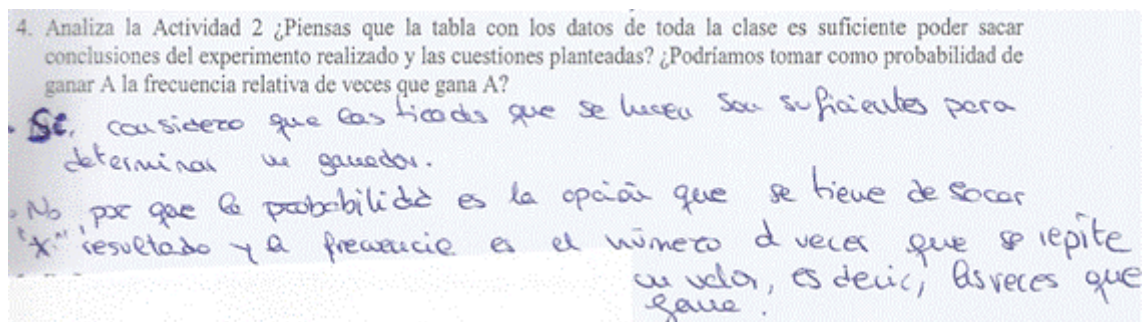 4. Analiza la Actividad 2 ¿Piensas que la tabla con los datos de toda la clase es suficiente poder sacar
conclusiones del experimento realizado y las cuestiones planteadas? ¿Podríamos tomar como probabilidad de
ganar A la frecuencia relativa de veces que gana A?
Sí, considero que las tiradas que se hacen son suficientes para
determinar un ganador.
No por que la probabilidd es la opción que se tiene de sacar
"x" resultado y la frecuencia es el número d veces que se repite
un valor, es decir, las veces que
gane.